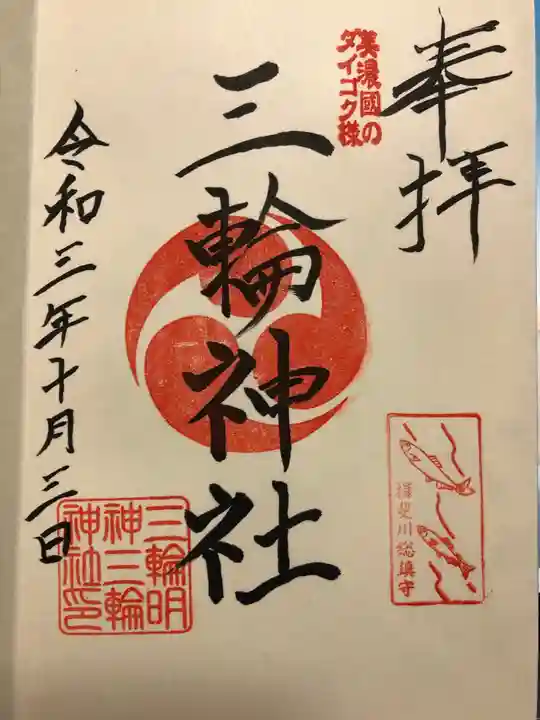 奉拝
美濃國の
ダイゴク様
三輪神社
揖斐川総鎮守
令和三年十月三日
三輪明
神三輪
神社印